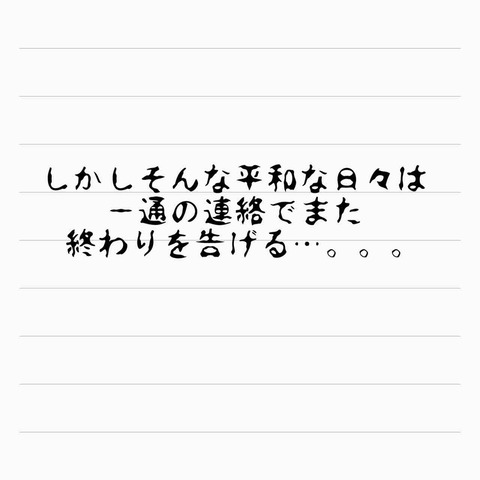 しかしそんな平和な日々は
一通の連絡でまた
終わりを告げる…。。。